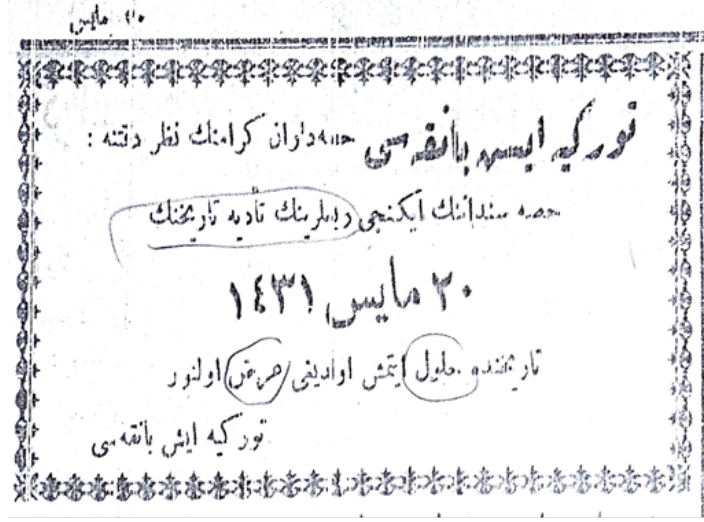 ٢٠ مايس
توركيه ايش بانقه‌سى حصه‌داران كرامنك نظر دقتنه :
حصه سنداتنك ايكنجى ربعلرينك تأديه تاريخنك
٢٠ مايس ١٣٤١
تاريخنده حلول ايتمش اولديغى عرض اولنور
توركيه ايش بانقه‌سى